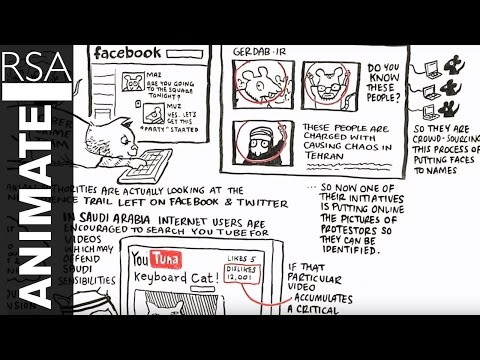 RSA
ANIMATE
facebook
MAZ
ARE YOU GOING
TO THE SQUARE
TONIGHT?
MUZ
YES. LET'S
GET THIS
"PARTY" STARTED
GERDAB.IR
DO YOU
KNOW
THESE
PEOPLE?
THESE PEOPLE ARE
CHARGED WITH
CAUSING CHAOS IN
TEHRAN
SO THEY ARE
CROWD-SOURCING
THIS PROCESS OF
PUTTING FACES
TO NAMES
ARE ACTUALLY LOOKING AT THE
TRAIL LEFT ON FACEBOOK & TWITTER
... SO NOW ONE OF
THEIR INITIATIVES
IS PUTTING ONLINE
THE PICTURES OF
PROTESTORS SO
THEY CAN BE
IDENTIFIED.
IN SAUDI ARABIA INTERNET USERS ARE
ENCOURAGED TO SEARCH YOUTUBE FOR
VIDEOS
WHICH MAY
OFFEND
SAUDI
SENSIBILITIES
YouTuna
LIKES 5
Keyboard Cat!
DISLIKES
12,001
IF THAT
PARTICULAR
VIDEO
ACCUMULATES
A CRITICAL